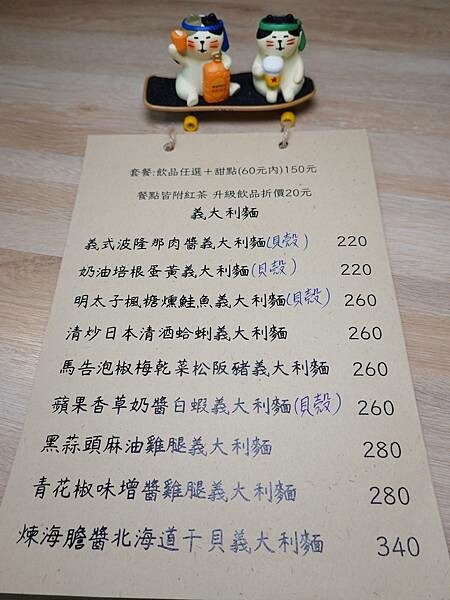 套餐:飲品任選+甜點(60元內)150元
餐點皆附紅茶 升級飲品折價20元
義大利麵
義式波隆那肉醬義大利麵(貝殼) 220
奶油培根蛋黃義大利麵(貝殼) 220
明太子楓糖燻鮭魚義大利麵(貝殼) 260
清炒日本清酒蛤蜊義大利麵 260
馬告泡椒梅乾菜松阪豬義大利麵 360
蘋果香草奶醬白蝦義大利麵(貝殼) 260
黑蒜頭麻油雞腿義大利麵 280
青花椒味增醬雞腿義大利麵 280
煉海膽醬北海道干貝義大利麵 340